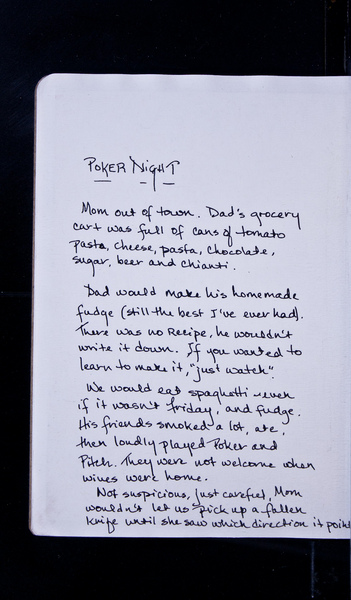 POKER NIGHT
Mom out of town. Dad's grocery
cart was full of cans of tomato
pasta, cheese, pasta, chocolate,
sugar, beer and chianti.
Dad would make his homemade
fudge (still the best I've ever had).
There was no Recipe, he wouldn't
write it down. If you wanted to
learn to make it, "just watch".
We would eat spaghetti even
if it wasn't friday, and fudge.
His friends smoked a lot, ate,
then loudly played Poker and
Pitch. They were not welcome when
wives were home.
Not suspicious, just careful, Mom
wouldn't let us pick up a fallen
knife until she saw which direction it